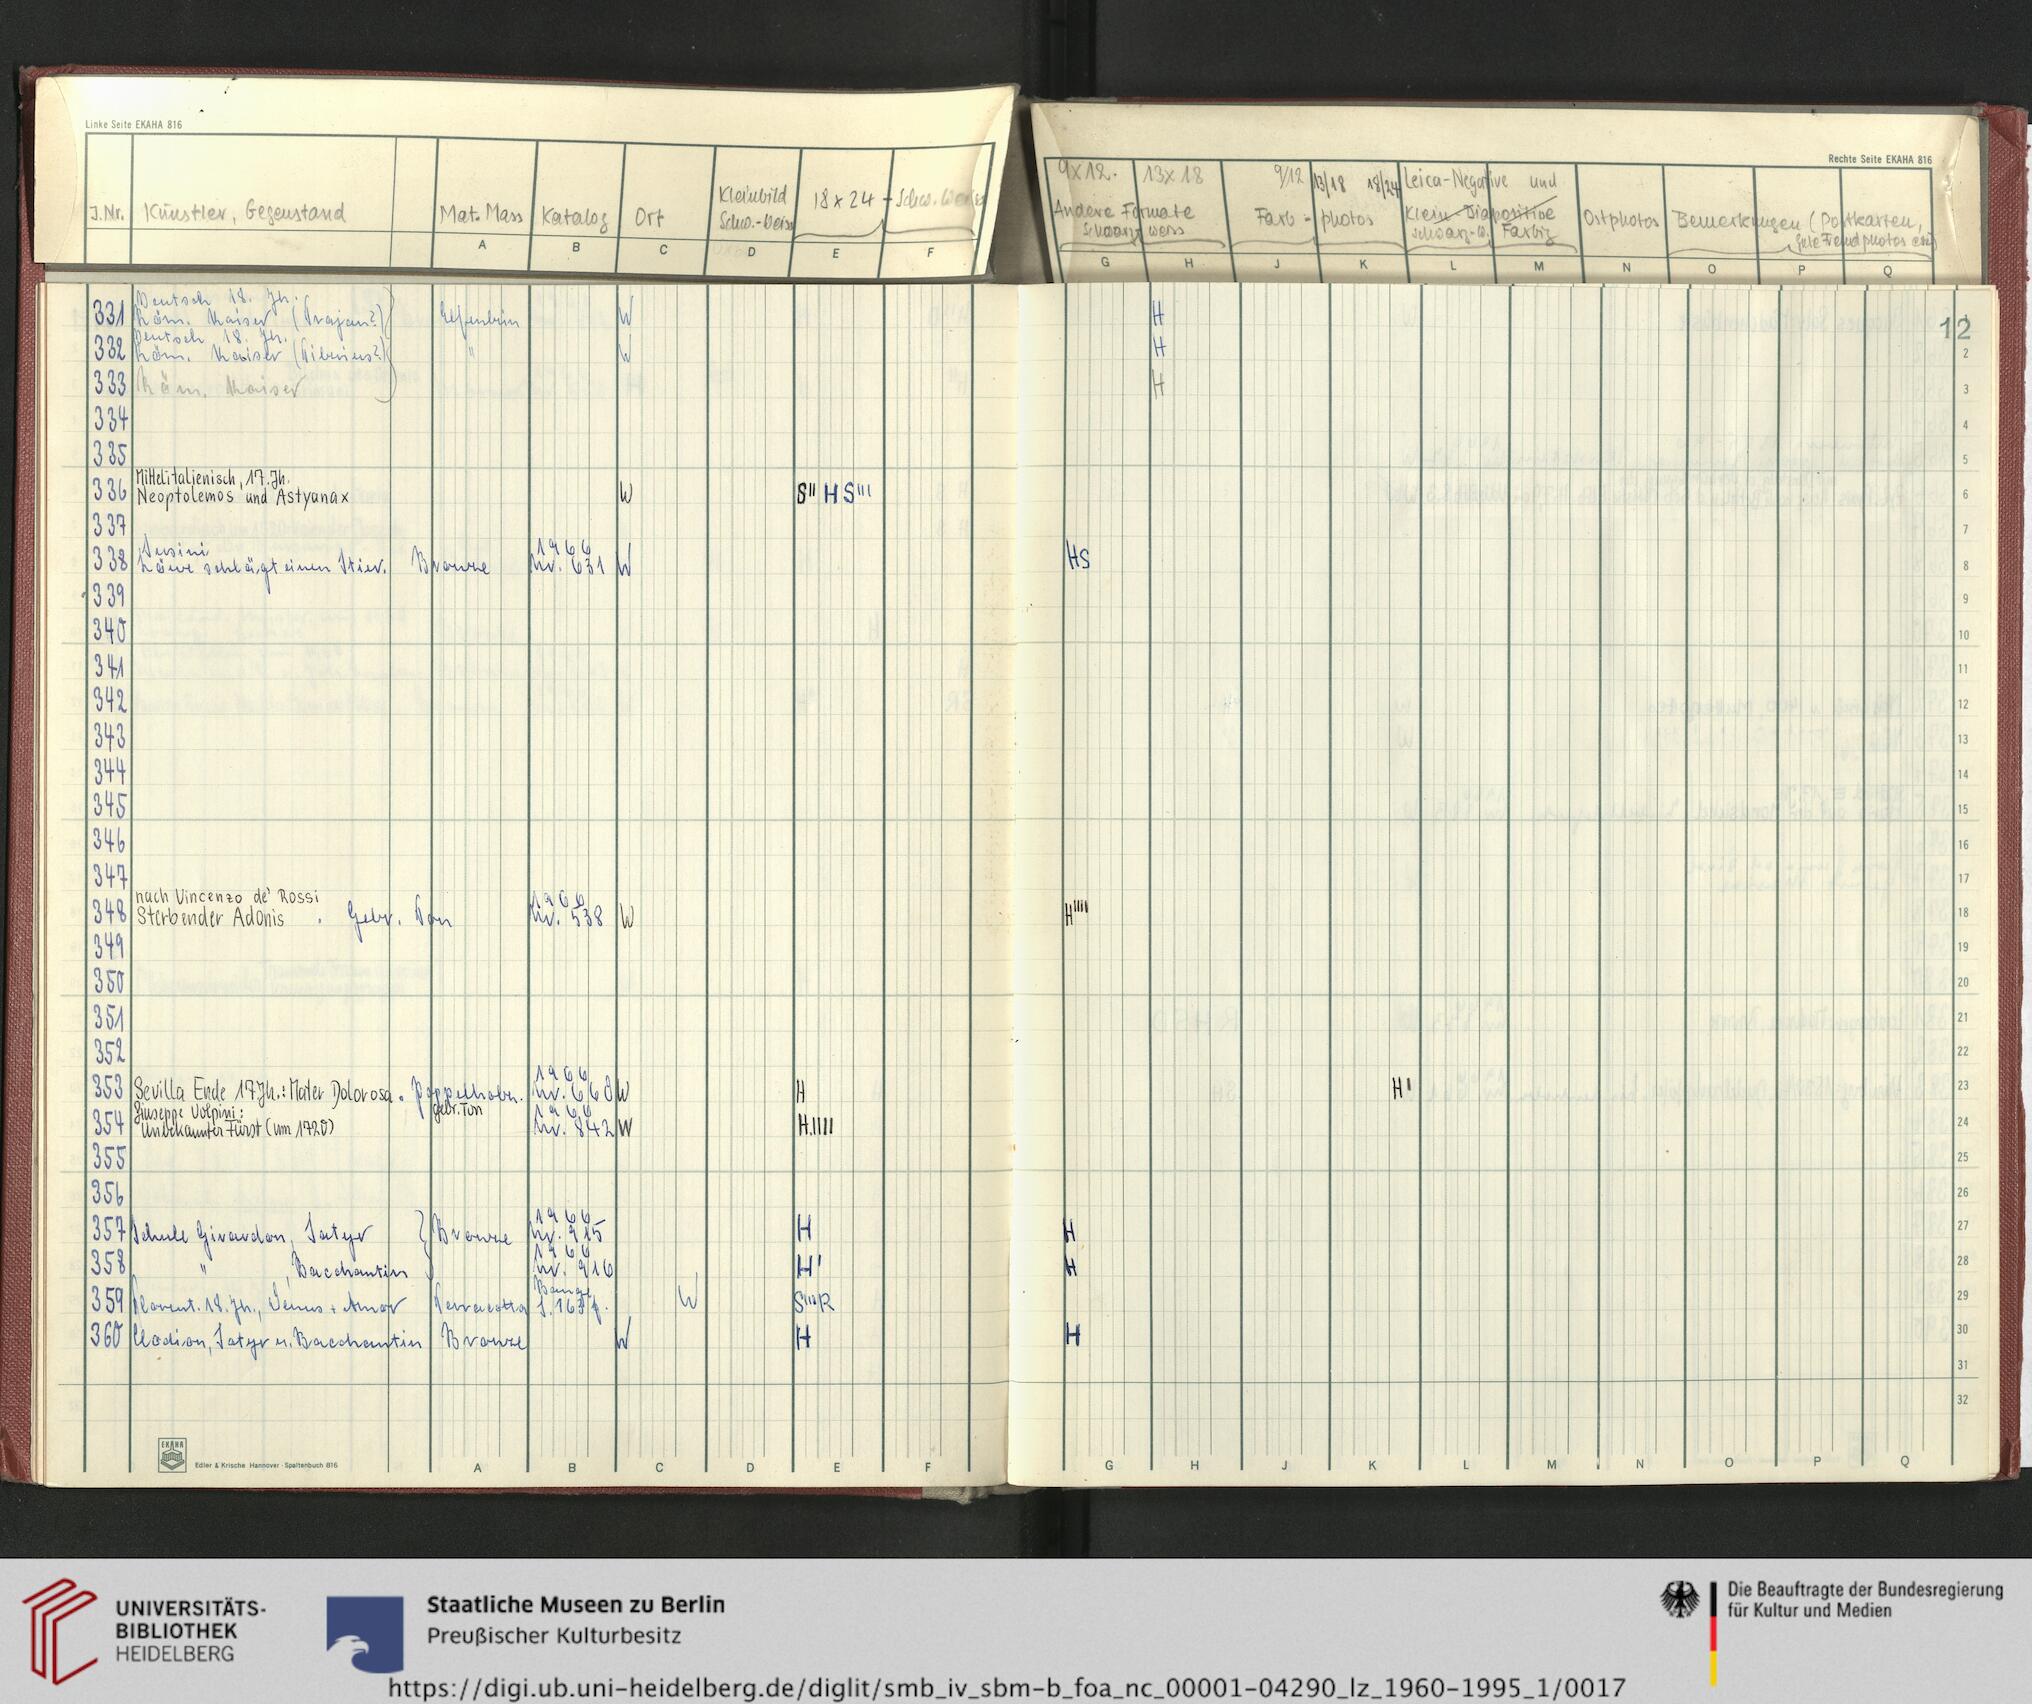 Linke Seite EKAHA 816
J.Nr. Künstler, Gegenstand Mat. Mass Katalog Ort Kleinbild Schw.-Weiss 18x24 - Schw. Weiss
A B C D E F
Rechte Seite EKAHA 816
9x12. 13x18 9/12 13/18 18/24 Leica-Negative und
Andere Formate Farb - photos Klein-Diapositive Ostphotos Bemerkungen (Postkarten,
Schwarz weiss schwarz-w. Farbig gute Fremdphotos etc)
G H J K L M N O P Q
12
Deutsch 18. Jh.
331 Röm. Kaiser (Trajan?) Elfenbein W H 1
Deutsch 18. Jh.
332 Röm. Kaiser (Tiberius?) " W H 2
333 Röm. Kaiser H 3
334 4
335 5
Mittelitalienisch, 17. Jh.
336 Neoptolemos und Astyanax W S'' H S''' 6
337 7
Susini 1966
338 Löwe schlägt einen Stier. Bronze Nr. 631 W HS 8
339 9
340 10
341 11
342 12
343 13
344 14
345 15
346 16
347 17
nach Vincenzo de' Rossi 1966
348 Sterbender Adonis . Gebr. Ton Nr. 538 W H'''' 18
349 19
350 20
351 21
352 22
1966
353 Sevilla Ende 17Jh.: Mater Dolorosa . Pappelholz. Nr. 668 W H H' 23
Giuseppe Volpini: gebr. Ton 1966
354 Unbekannter Fürst (um 1720) Nr. 842 W H.IIII 24
355 25
356 26
1966
357 Schule Girardon, Satyr } Bronze Nr. 915 H H 27
1966
358 " , Bacchantin Nr. 916 H' H 28
Bange
359 Florent. 18. Jh., Venus + Amor Terracotta S. 163 f. W S'''R 29
360 Clodion, Satyr u. Bacchantin Bronze W H H 30
31
32
EKAHA
Edler & Krische Hannover · Spaltenbuch 816
A B C D E F
G H J K L M N O P Q
UNIVERSITÄTS-
BIBLIOTHEK
HEIDELBERG
Staatliche Museen zu Berlin
Preußischer Kulturbesitz
Die Beauftragte der Bundesregierung
für Kultur und Medien
https://digi.ub.uni-heidelberg.de/diglit/smb_iv_sbm-b_foa_nc_00001-04290_lz_1960-1995_1/0017